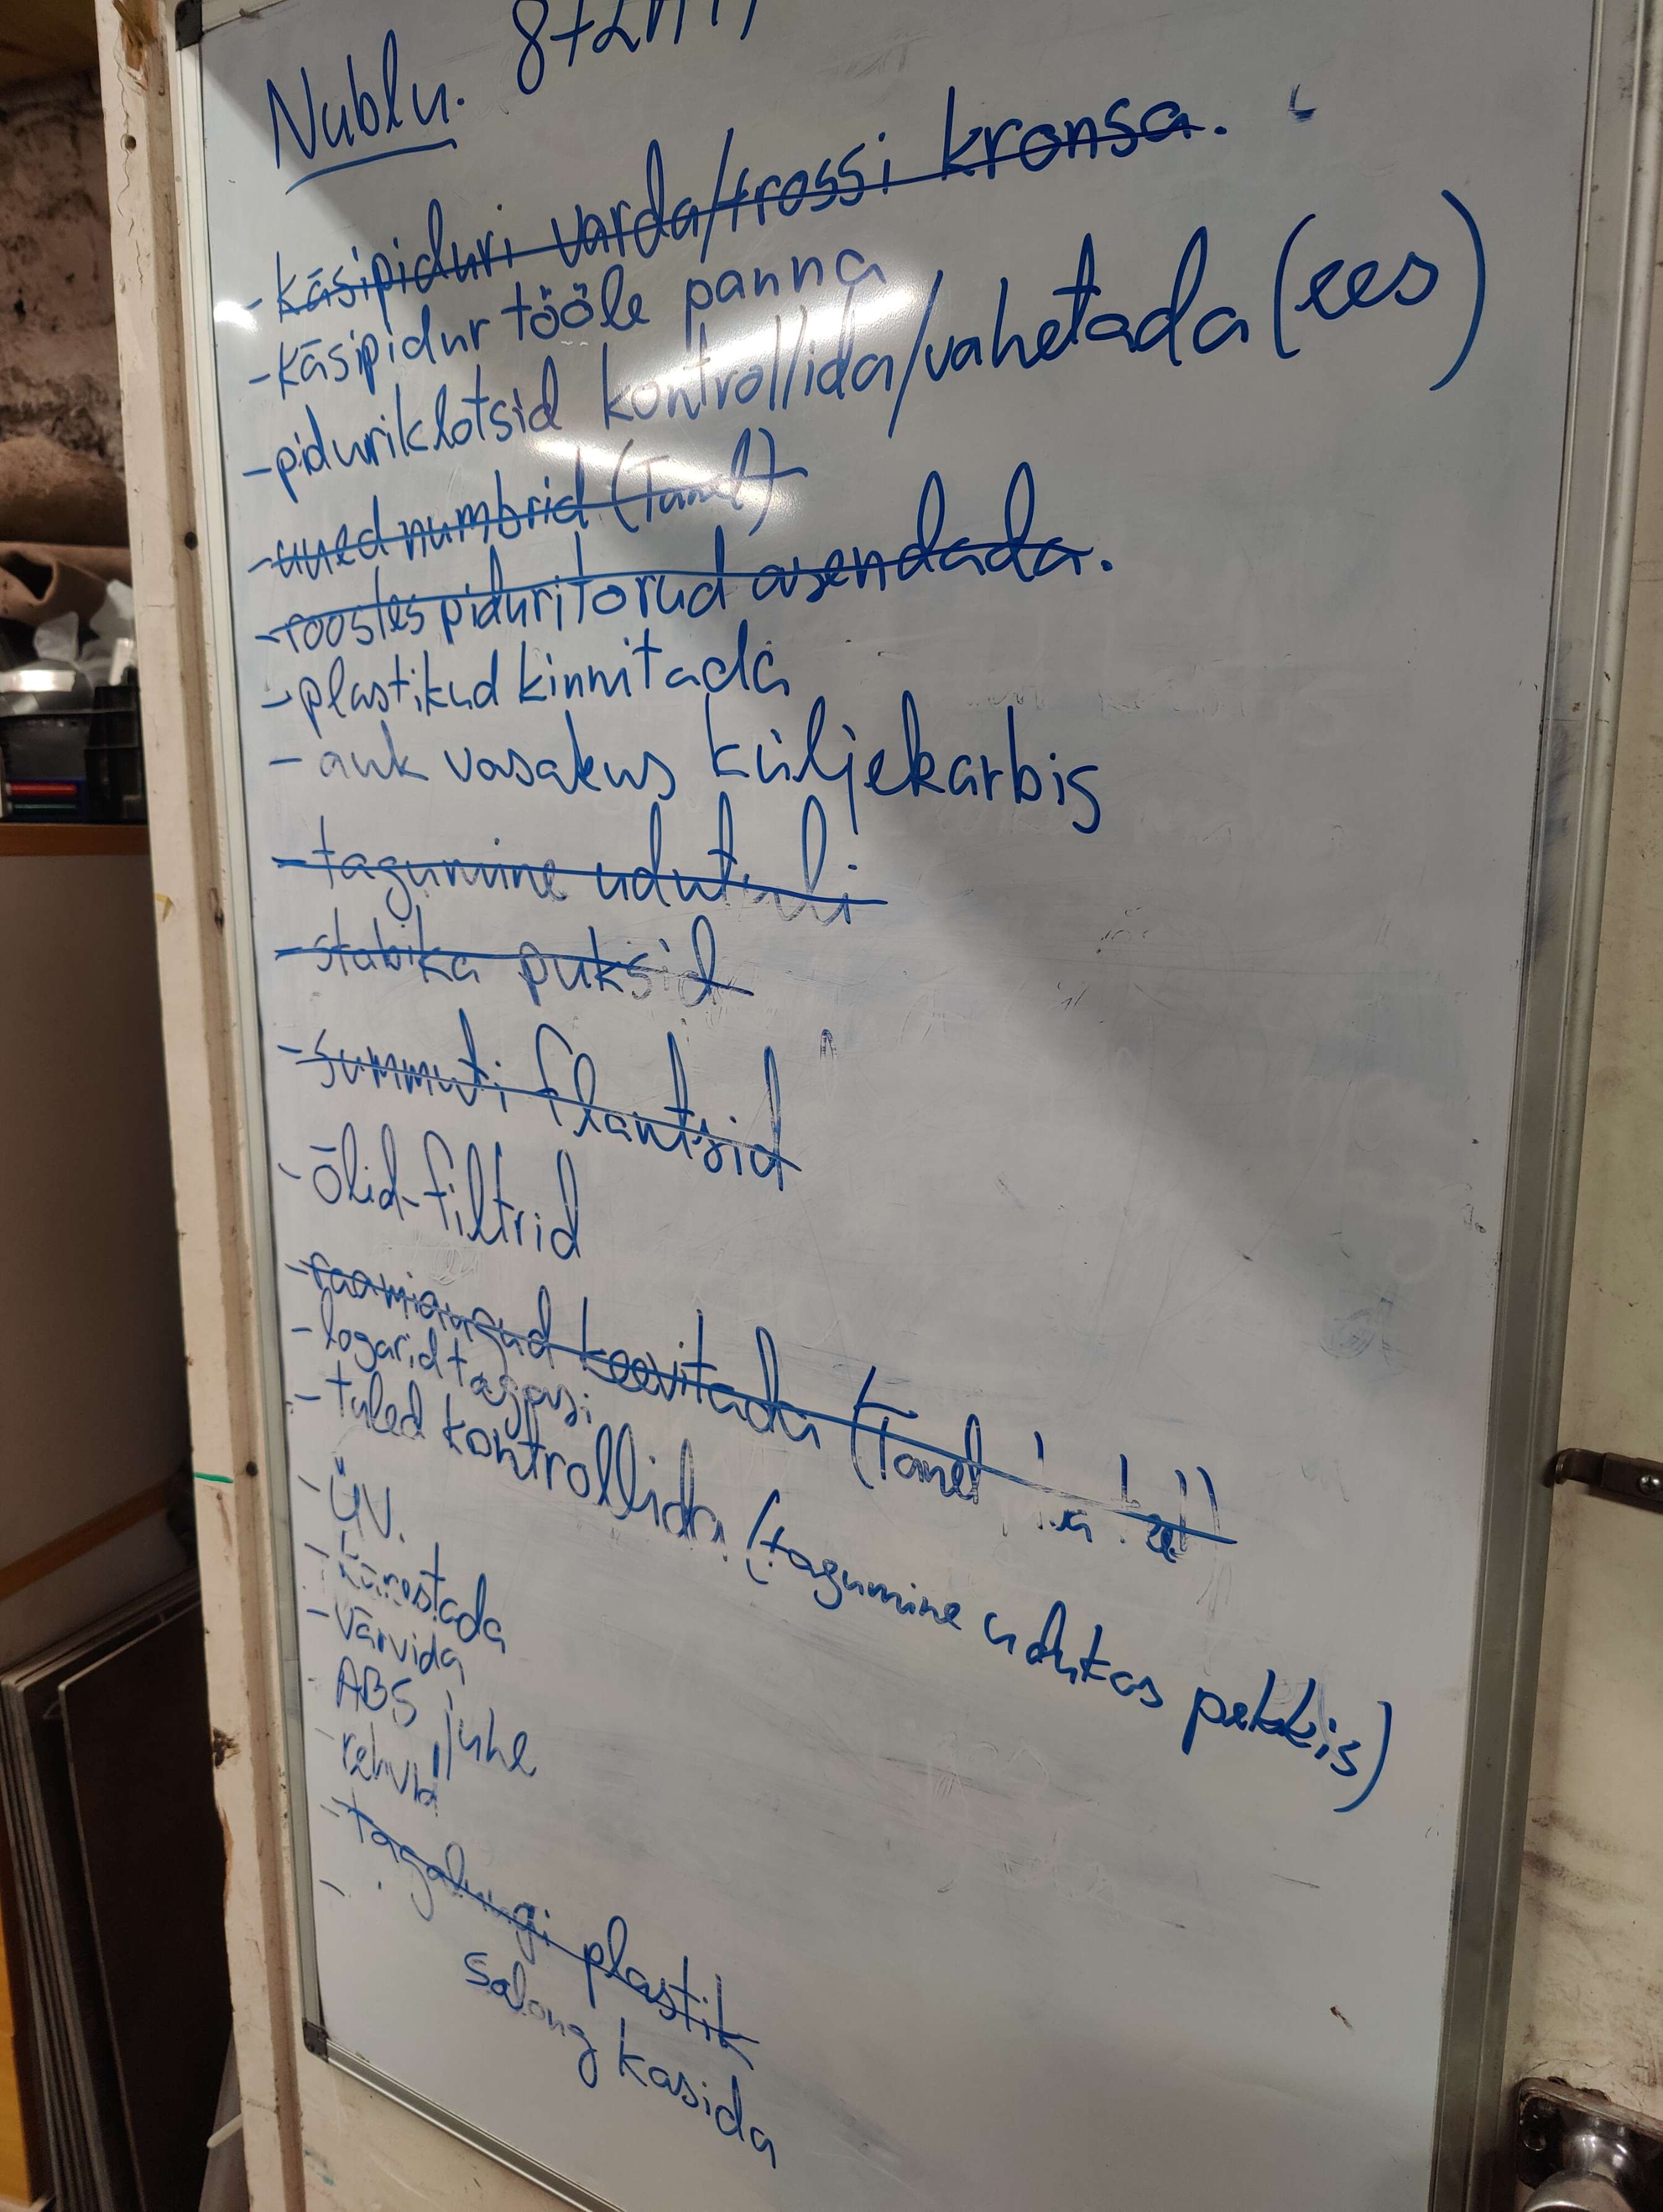 Nublu.
- käsipiduri varda/trossi kronsa.
- käsipidur tööle panna
- piduriklotsid kontrollida/vahetada (ees)
- uued numbrid (Tanel)
- roostes piduritorud asendada.
- plastikud kinnitada
- auk vasakus küljekarbis
- tagumine udutuli
- stabika puksid
- summuti flantsid
- õlid-filtrid
- raamiaugud keevitada (Tanel
- logarid tagasi
- tuled kontrollida (tagumine udukas pekkis)
- ÜV.
- kärestada
- värvida
- ABS juhe
- rehvid
- tagaluugi plastik
- salong kasida